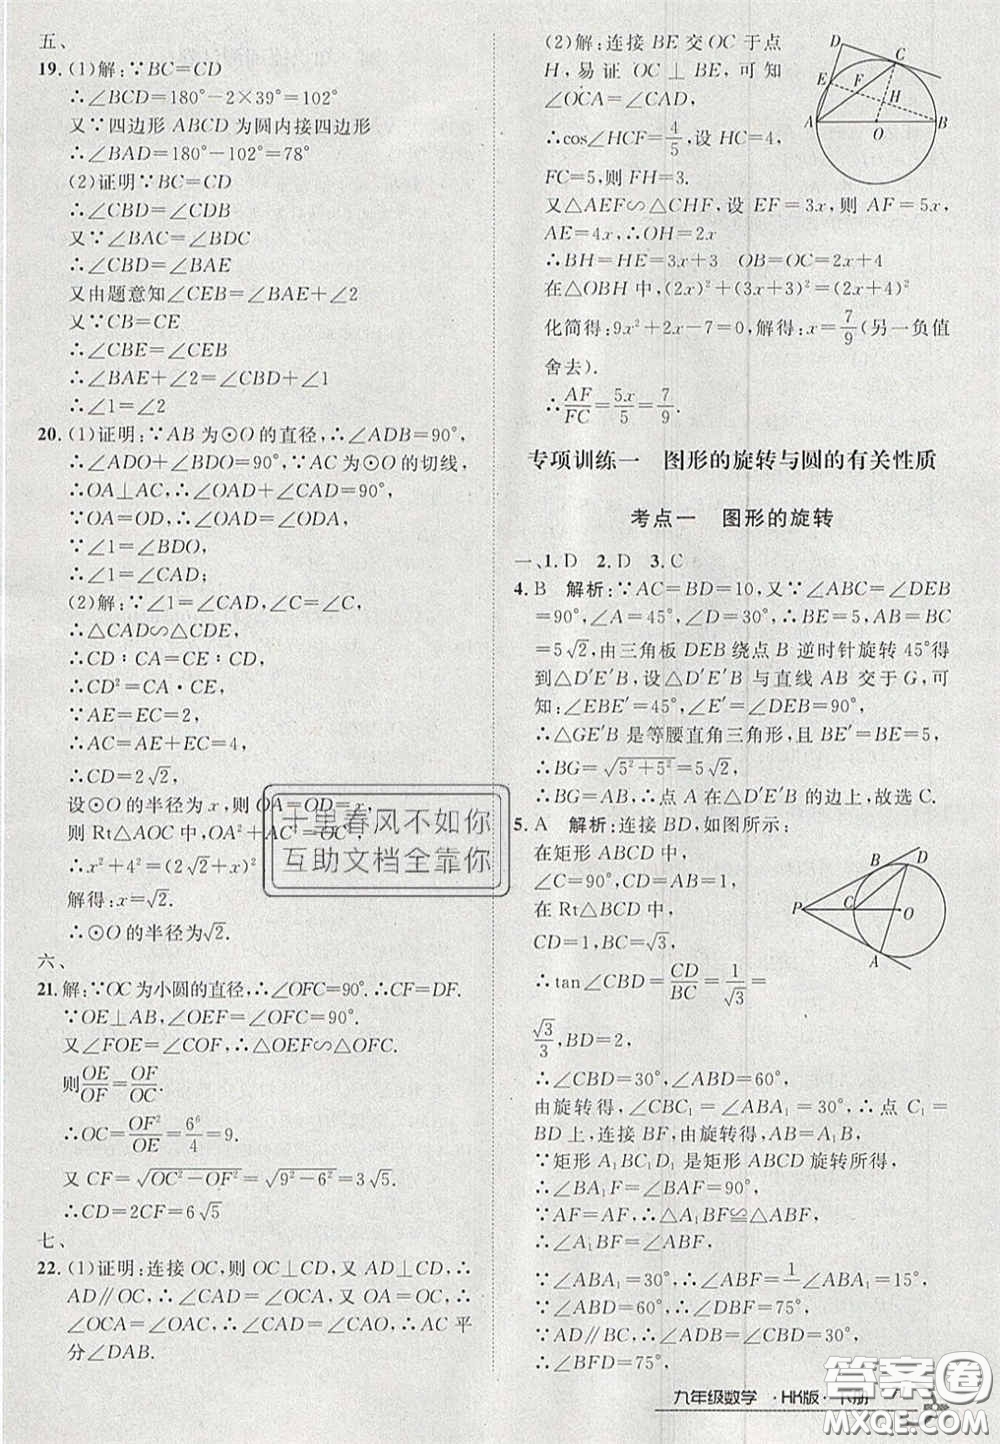 五、
19. (1)解:∵BC=CD
∴∠BCD=180°-2×39°=102°
又∵四边形 ABCD 为圆内接四边形
∴∠BAD=180°-102°=78°
(2)证明∵BC=CD
∴∠CBD=∠CDB
又∵∠BAC=∠BDC
∴∠CBD=∠BAE
又由题意知∠CEB=∠BAE+∠2
又∵CB=CE
∴∠CBE=∠CEB
∴∠BAE+∠2=∠CBD+∠1
∴∠1=∠2
20. (1)证明:∵AB 为⊙O 的直径,∴∠ADB=90°,
∴∠ADO+∠BDO=90°,∵AC 为⊙O 的切线,
∴OA⊥AC,∴∠OAD+∠CAD=90°,
∵OA=OD,∴∠OAD=∠ODA,
∵∠1=∠BDO,
∴∠1=∠CAD;
(2)解:∵∠1=∠CAD,∠C=∠C,
∴△CAD∽△CDE,
∴CD∶CA=CE∶CD,
∴CD²=CA·CE,
∵AE=EC=2,
∴AC=AE+EC=4,
∴CD=2√2,
设⊙O 的半径为 x,则 OA=OD=x,
则 Rt△AOC 中,OA²+AC²=OC²,
∴x²+4²=(2√2+x)²
解得:x=√2.
∴⊙O 的半径为√2.
六、
21. 解:∵OC 为小圆的直径,∴∠OFC=90°.∴CF=DF.
∵OE⊥AB,∴∠OEF=∠OFC=90°.
又∠FOE=∠COF,∴△OEF∽△OFC.
则OE/OF=OF/OC.
∴OC=OF²/OE=6⁶/4=9.
又 CF=√(OC²-OF²)=√(9²-6²)=3√5
∴CD=2CF=6√5
七、
22. (1)证明:连接 OC,则 OC⊥CD,又 AD⊥CD,∴
AD∥OC,∴∠CAD=∠OCA,又 OA=OC,∴
∠OCA=∠OAC,∴∠CAD=∠CAO,∴AC 平
分∠DAB.
(2)解:连接 BE 交 OC 于点
H,易证 OC⊥BE,可知
∠OCA=∠CAD,
∴cos∠HCF=4/5,设 HC=4,
FC=5,则 FH=3.
又△AEF∽△CHF,设 EF=3x,则 AF=5x,
AE=4x,∴OH=2x
∴BH=HE=3x+3 OB=OC=2x+4
在△OBH 中,(2x)²+(3x+3)²=(2x+4)²
化简得:9x²+2x-7=0,解得:x=7/9(另一负值
舍去).
∴AF/FC=5x/5=7/9.
D
C
E
F
H
A
O
B
专项训练一 图形的旋转与圆的有关性质
考点一 图形的旋转
一、1. D 2. D 3. C
4. B 解析:∵AC=BD=10,又∵∠ABC=∠DEB
=90°,∠A=45°,∠D=30°,∴BE=5,AB=BC
=5√2,由三角板 DEB 绕点 B 逆时针旋转 45°得
到△D′E′B,设△D′E′B 与直线 AB 交于 G,可
知:∠EBE′=45°,∠E′=∠DEB=90°,
∴△GE′B 是等腰直角三角形,且 BE′=BE=5,
∴BG=√(5²+5²)=5√2,
∴BG=AB,∴点 A 在△D′E′B 的边上,故选 C.
5. A 解析:连接 BD,如图所示:
在矩形 ABCD 中,
∠C=90°,CD=AB=1,
在 Rt△BCD 中,
CD=1,BC=√3,
∴tan∠CBD=CD/BC=1/√3=
√3/3,BD=2,
∴∠CBD=30°,∠ABD=60°,
由旋转得,∠CBC₁=∠ABA₁=30°,∴点 C₁=
BD 上,连接 BF,由旋转得,AB=A₁B,
∵矩形 A₁BC₁D₁ 是矩形 ABCD 旋转所得,
∴∠BA₁F=∠BAF=90°,
∵AF=AF,∴△A₁BF≌△ABF,
∴∠A₁BF=∠ABF,
∵∠ABA₁=30°,∴∠ABF=1/2∠ABA₁=15°,
∵∠ABD=60°,∴∠DBF=75°,
∵AD∥BC,∴∠ADB=∠CBD=30°,
∴∠BFD=75°,
B
D
P
C
O
A
十里春风不如你
互助文档全靠你
九年级数学 ·HK版· 下册
答案圈
MXQE.COM